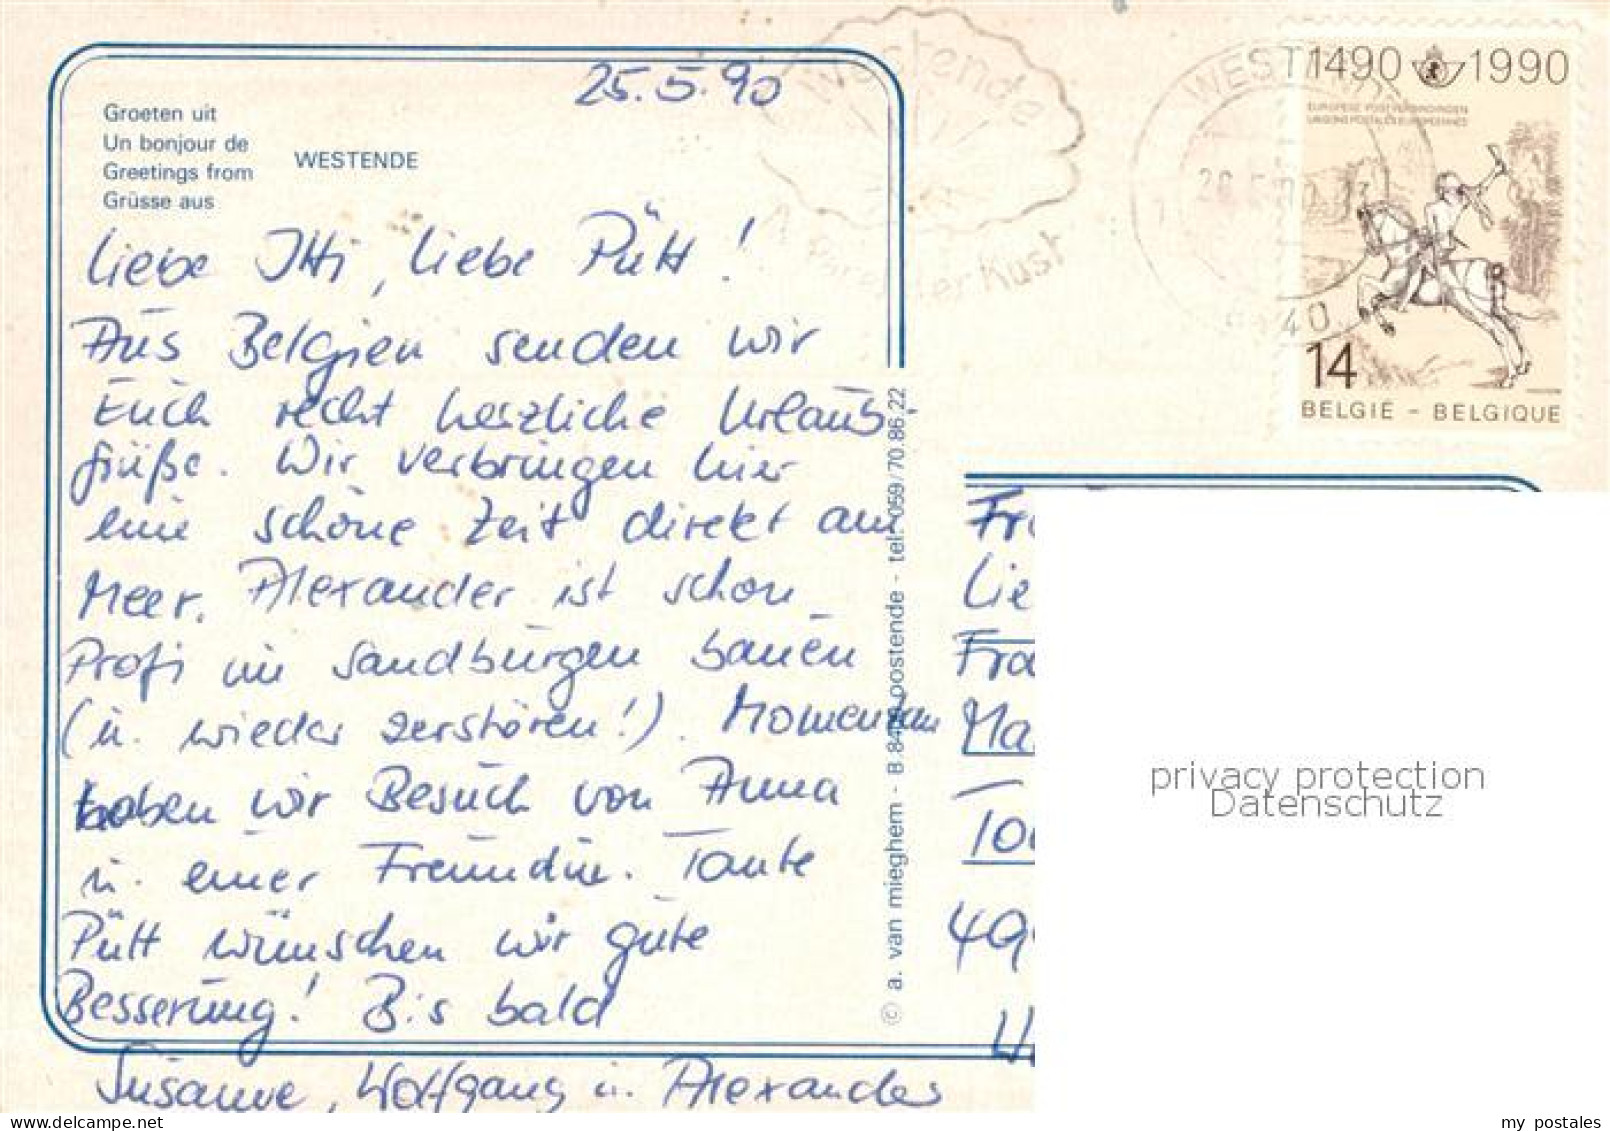 25.5.90
Groeten uit
Un bonjour de
Greetings from
Grüsse aus
WESTENDE
Liebe Itti, liebe Pütt!
Aus Belgien senden wir
Euch recht herzliche Urlaubs-
grüße. Wir verbringen hier
eine schöne Zeit direkt am
Meer. Alexander ist schon
Profi im Sandburgen bauen
(u. wieder zerstören!). Momentan
haben wir Besuch von Anna
u. einer Freundin. Tante
Pütt wünschen wir gute
Besserung! Bis bald
Susanne, Wolfgang u. Alexander
© a. van mieghem - B 8400 oostende - tel. 059/70.86.22
Westende
Kust
WESTENDE
1490 1990
EUROPESE POSTVERBINDINGEN
LIAISONS POSTALES EUROPEENNES
14
BELGIË - BELGIQUE
Fr
Lie
Fra
Ma
49
privacy protection
Datenschutz
my postales